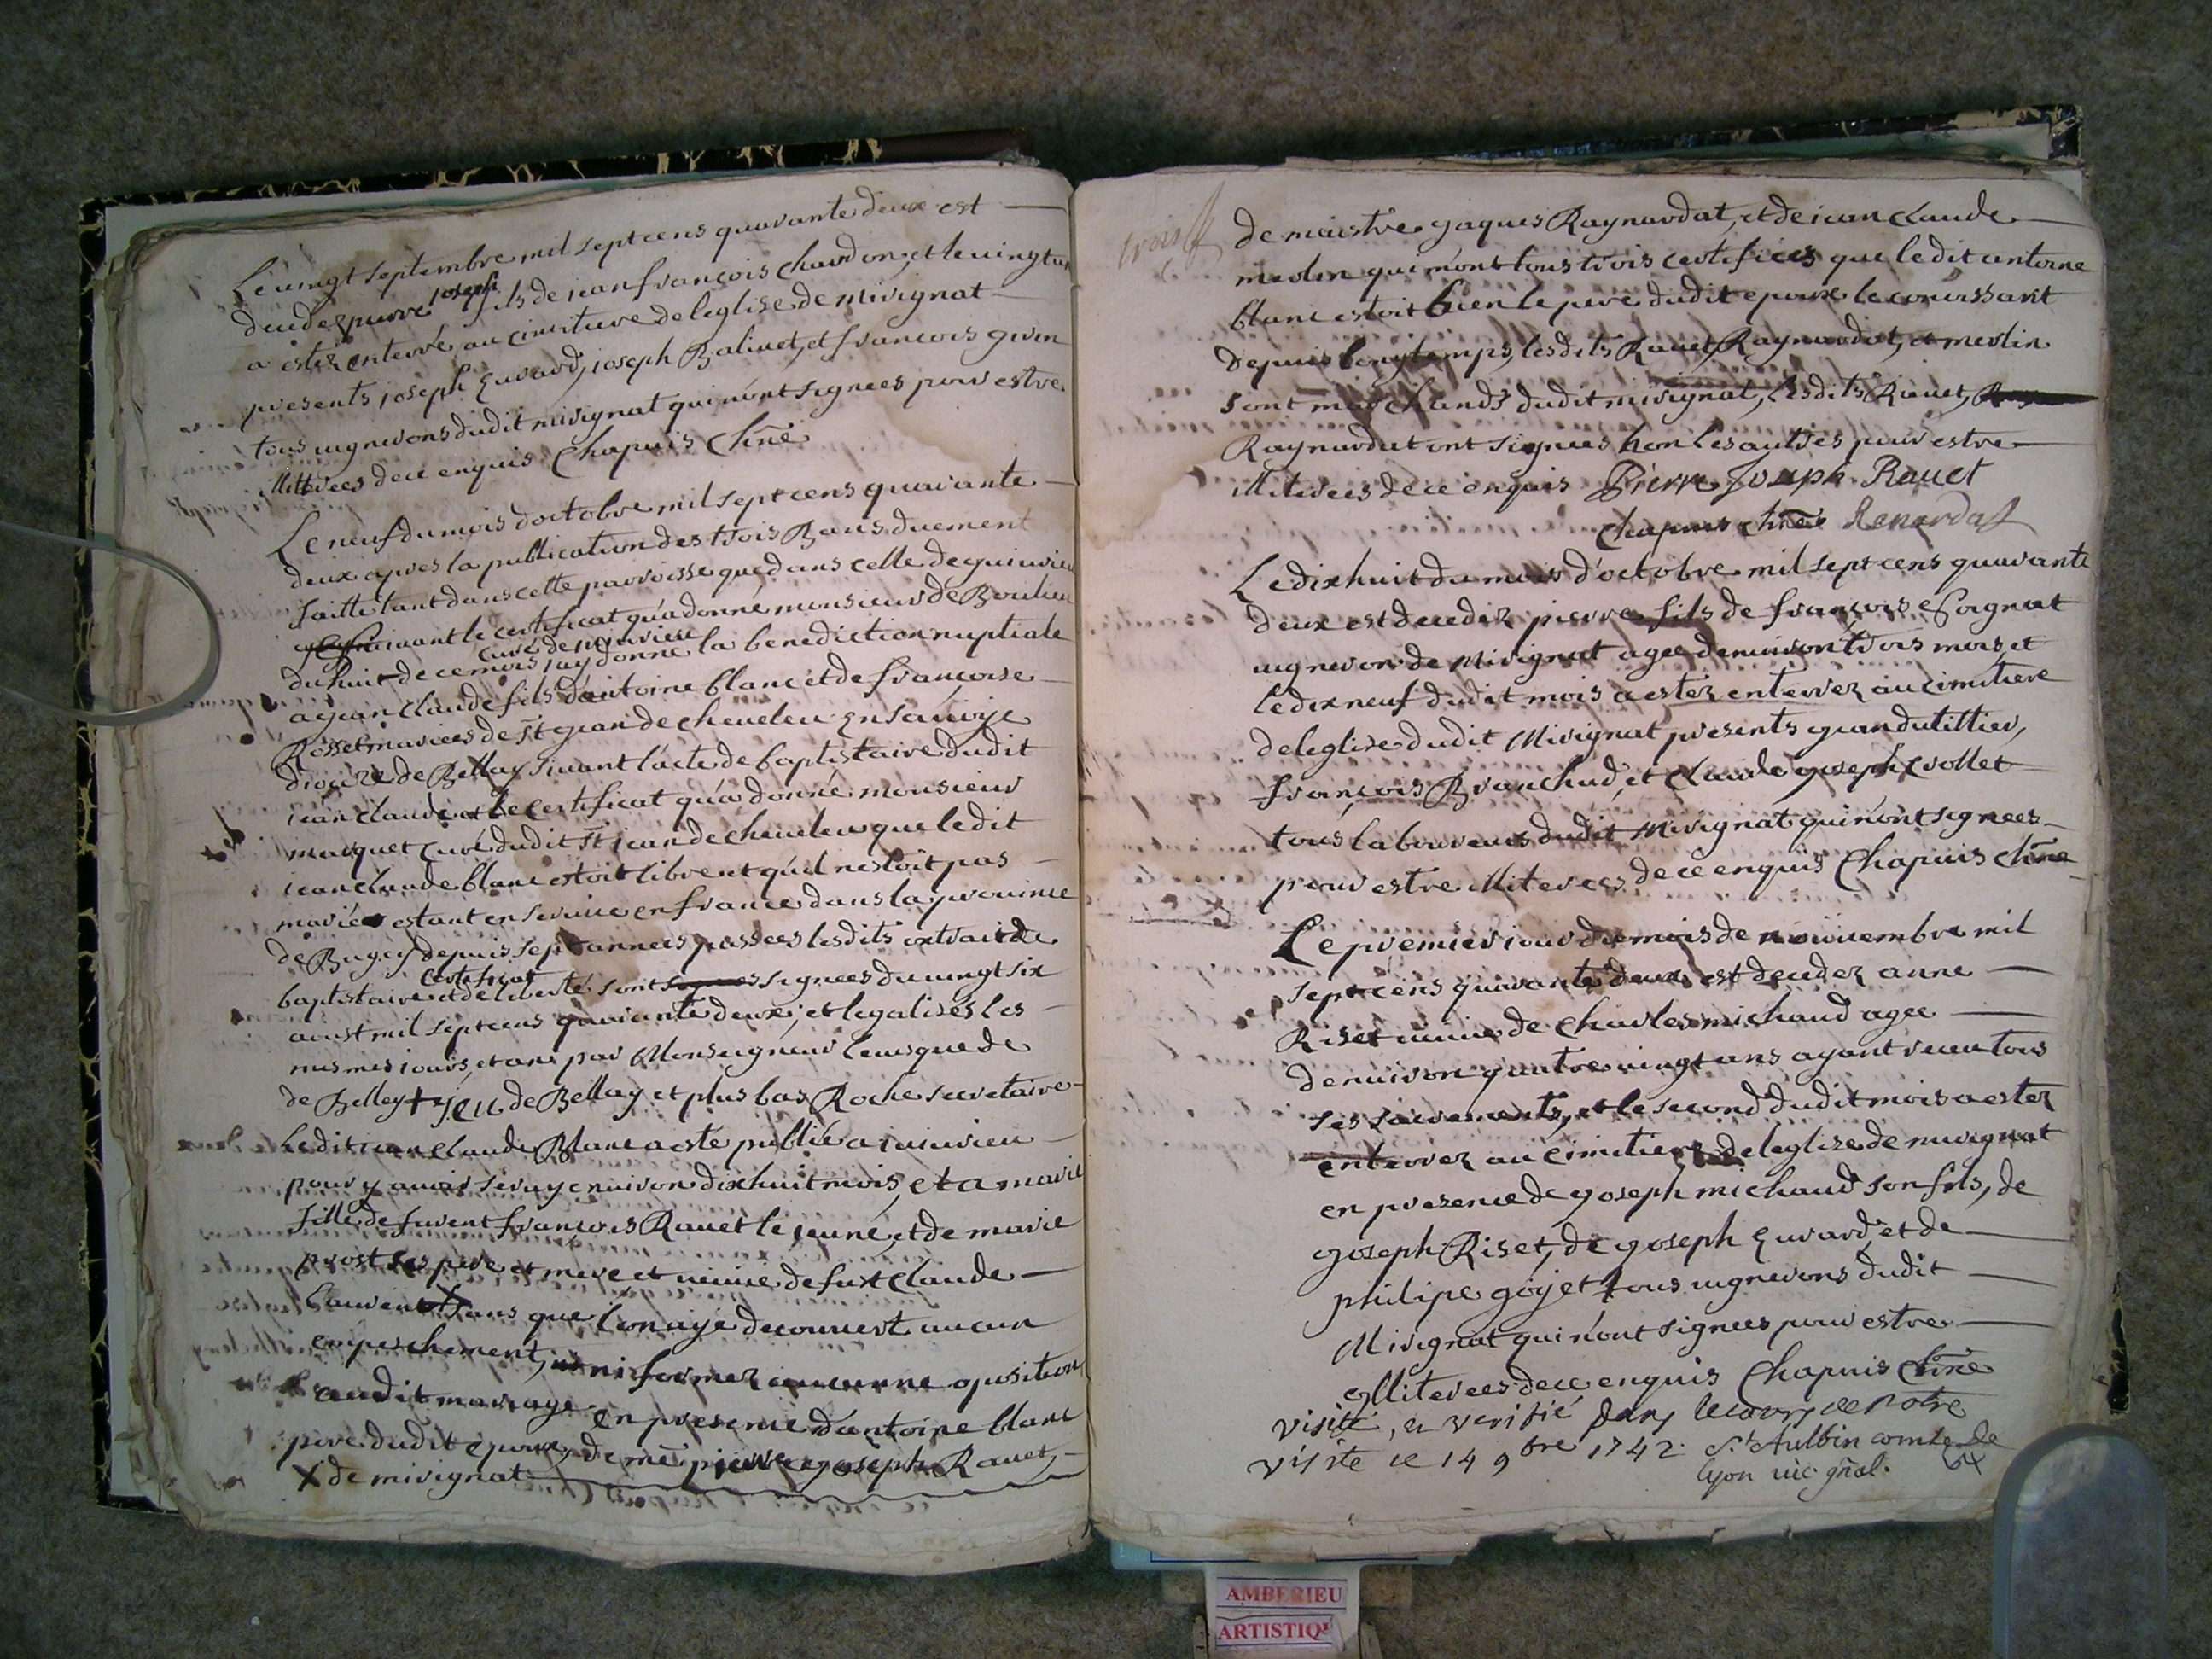 Le vingt septembre mil sept cens quarante deux est
decedez pierre joseph fils de jean françois chardon, et le vingt un
a estez enterré au cimitiere de leglise de mirignat
presents joseph Euvard, joseph Balivet, et francois givin
tous vignerons dudit mirignat qui n'ont signees pour estre
illiterees de ce enquis Chapuis Cure
Le neuf du mois doctobre mil sept cens quarante
deux apres la publication des trois Bans duement
faitte tant dans cette parroisse que dans celle de
suivant le certificat qu'a donné monsieur de Boulieu
curé de
du huit de ce mois j'ay donné la benediction nuptiale
a jean claude fils d'antoine blanc et de francoise
Rosset mariees de St jean de cheuelu En Savoye
diocèze de Bellay suivant l'acte de baptistaire dudit
jean claude et le certificat qu'a donné monsieur
marquet curé dudit St jean de cheuelu que ledit
jean claude blanc estoit libre et qu'il nestoit pas
marié estant en service en france dans la province
de Bugey depuis sept annees passees lesdits extrait de
baptistaire et certificat de liberté sont signees du vingt six
aoust mil sept cens quarante deux, et legalisés les
mesmes jours, et an par Monseigneur leuesque de
de Belley + jeu de Bellay et plus bas Roche secretaire
Ledit jean claude Blanc a esté publié a
pour y avoir servy environ dix huit mois, et a marie
fille de furent françois Rauet le jeune, et de marie
prost ses pere et mere et veuve de fut claude
Laurent X sans que l'on aye decouuert aucun
empeschement, ni formez aucunne oposition
audit mariage en presence d'antoine blanc
pere dudit epoux, de me pierre joseph Rauet,
X de mirignat
trois
de maistre jaques Raynardat, et de jean claude
merlin qui m'ont tous trois certifiees que ledit antoine
blanc estoit bien le pere dudit epoux le conoissant
depuis longtemps, lesdits Rauet, Raynardat, et merlin
sont marchands dudit mirignat, lesdits Rauet,
Raynardat ont signees non les aultres pour estre
illiterees de ce enquis Pierre Joseph Rauet
Chapuis Cure Renardat
Le dixhuit du mois d'octobre mil sept cens quarante
deux est decedez pierre fils de françois Cognat
vigneron de Mirignat agee denviron trois mois, et
le dixneuf dudit mois a estez enterrez au cimitiere
de leglise dudit Mirignat presents jean dutillier,
françois Branchud, et claude joseph crollet
tous laboureurs dudit Mirignat qui n'ont signees
pour estre illiterees de ce enquis Chapuis Cure
Le premier jour du mois de nouvembre mil
sept cens quarante deux est decedez anne
Riset veuve de Charles michaud agee
denviron quatre vingt ans ayant receu tous
ses sacrements, et le second dudit mois a estez
enterrez au cimitiere de leglise de mirignat
en presence de joseph michaud son fils, de
joseph Riset, de joseph Euvard, et de
philipe gojet tous vignerons dudit
Mirignat qui n'ont signees pour estre
illiterees de ce enquis Chapuis Cure
visité, et verifié dans le cours de notre
visite ce 14 9bre 1742. St Aulbin comte de
Lyon vic gñal.
AMBERIEU
ARTISTIQ